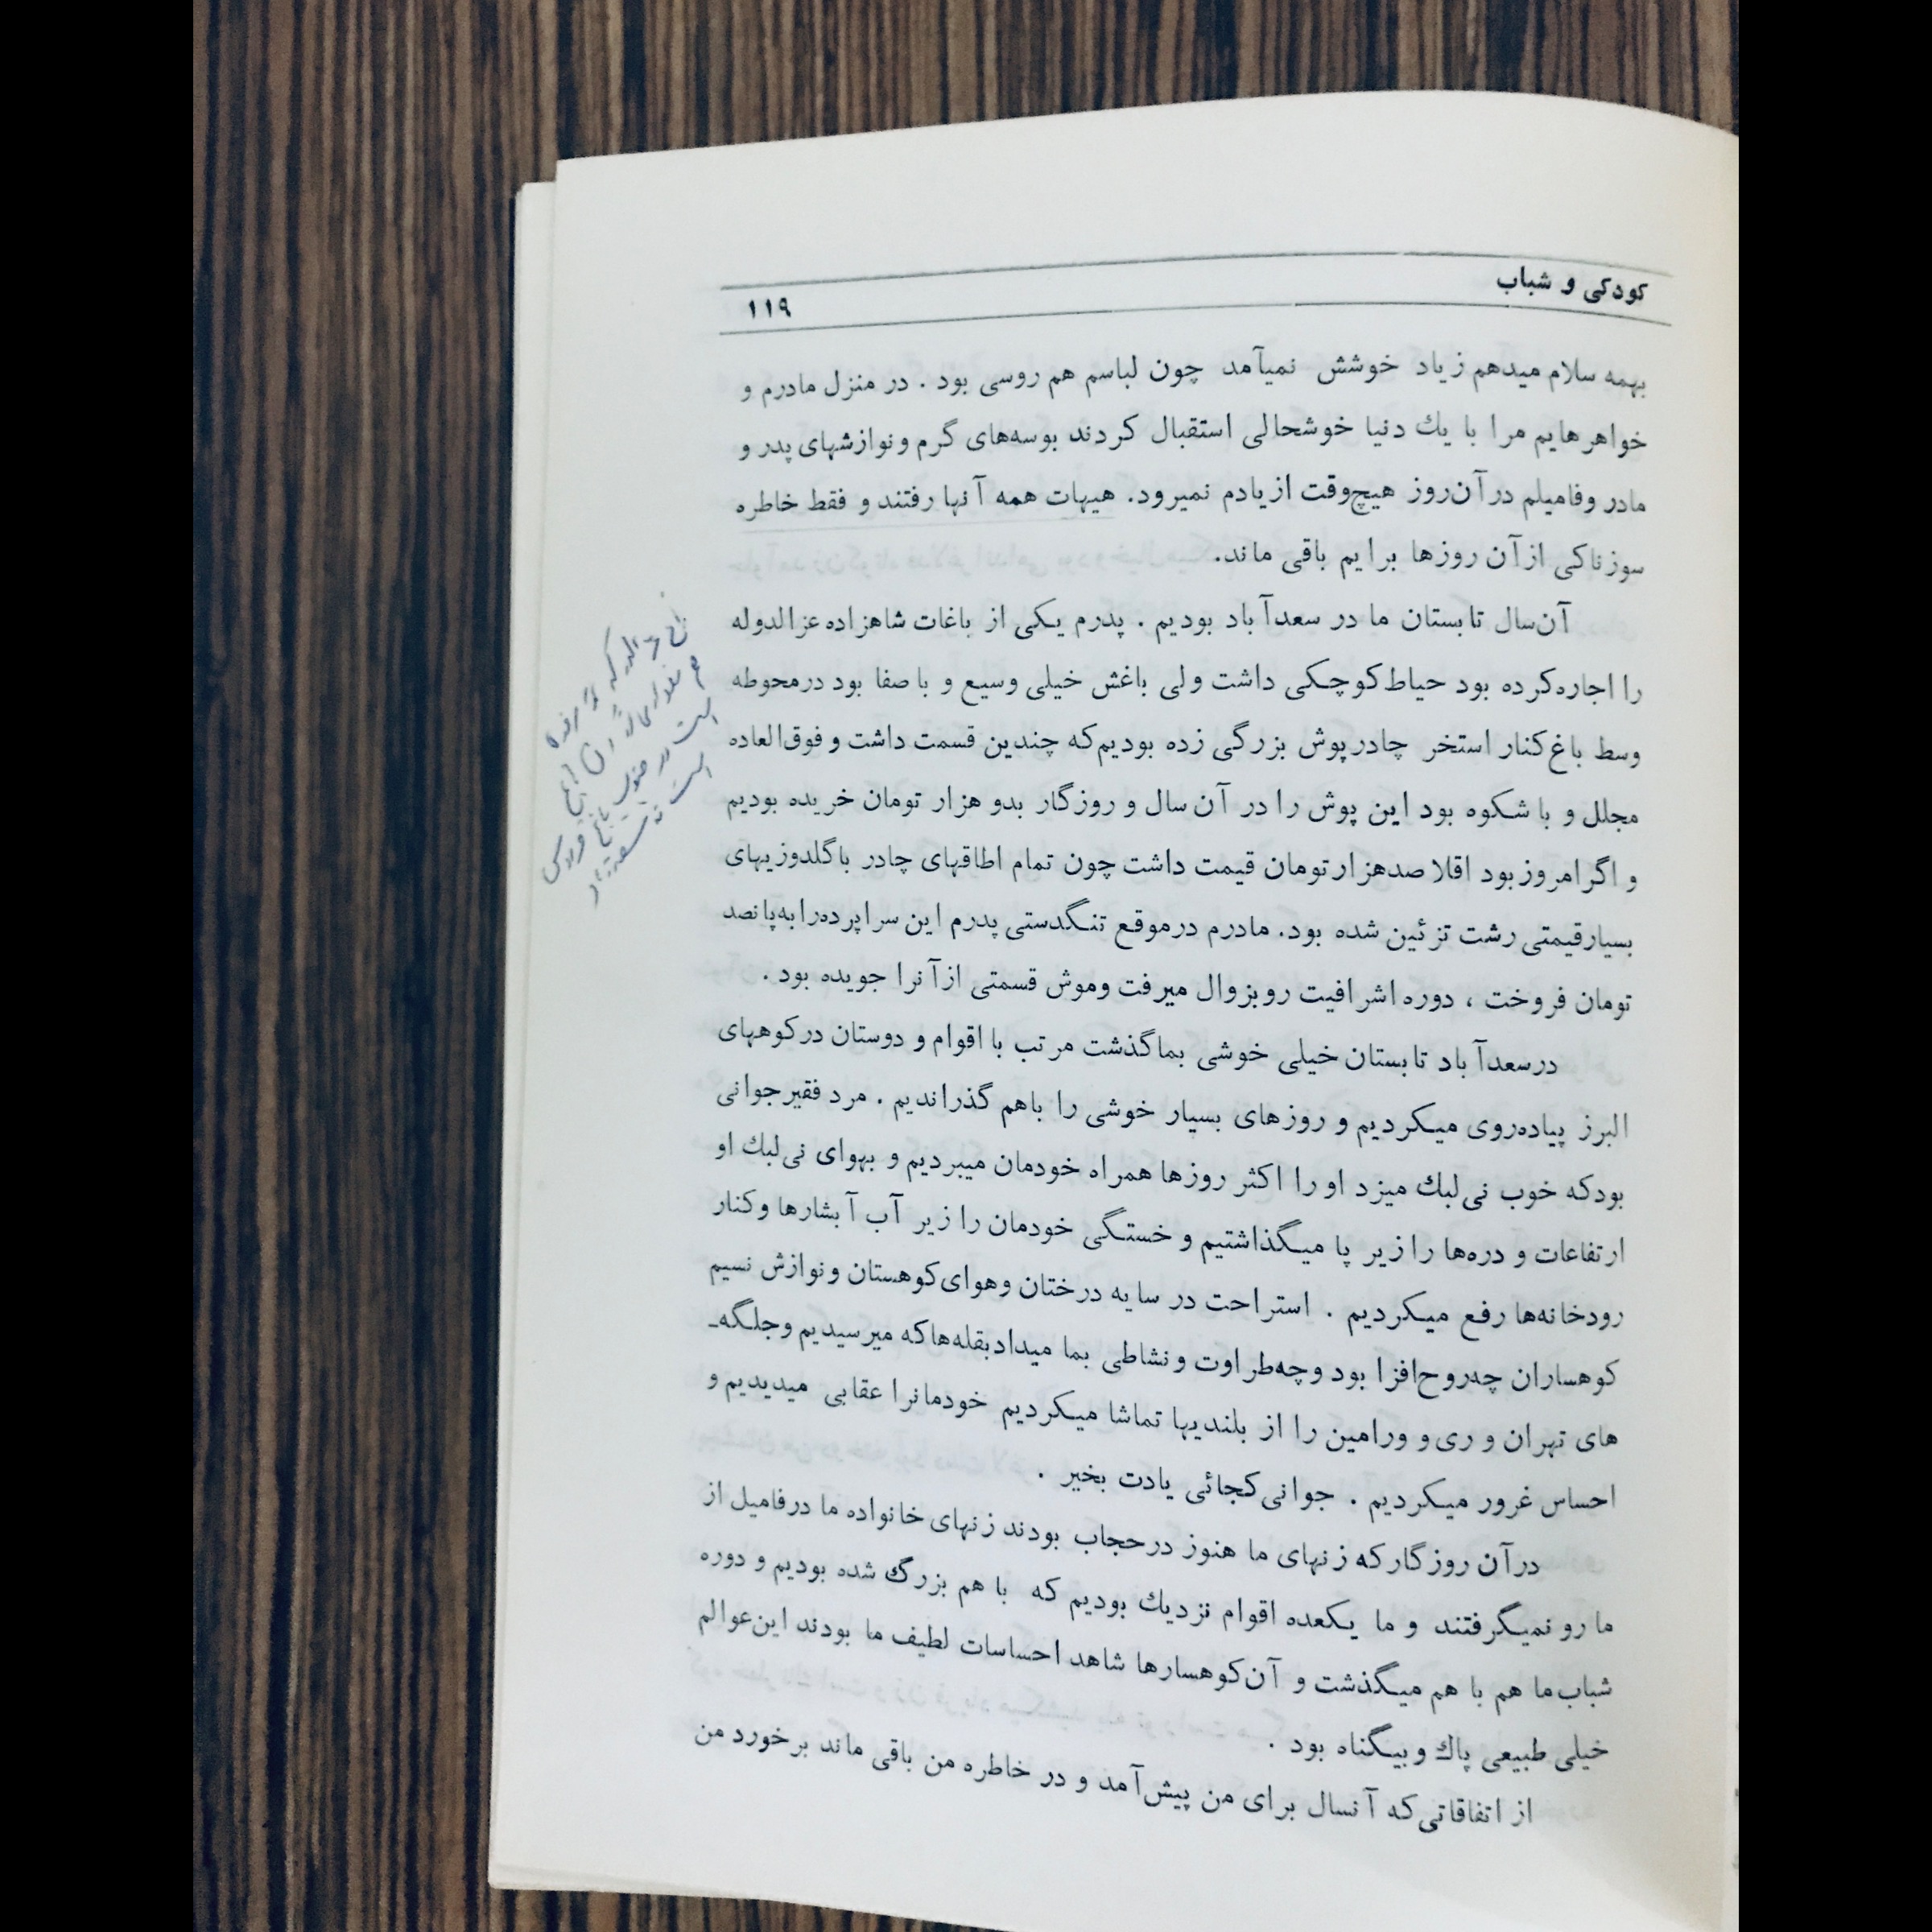 کودکی و شباب
۱۱۹
بهمه سلام میدهم زیاد خوشش نمیآمد چون لباسم هم روسی بود . در منزل مادرم و
خواهرهایم مرا با یك دنیا خوشحالی استقبال کردند بوسه‌های گرم و نوازشهای پدر و
مادر وفامیلم در آن‌روز هیچ‌وقت از یادم نمیرود. هیهات همه آنها رفتند و فقط خاطره
سوزناکی از آن روزها برایم باقی ماند.
آن‌سال تابستان ما در سعدآباد بودیم . پدرم یکی از باغات شاهزاده عزالدوله
را اجاره‌کرده بود حیاط کوچکی داشت ولی باغش خیلی وسیع و با صفا بود درمحوطه
وسط باغ کنار استخر چادرپوش بزرگی زده بودیم‌که چندین قسمت داشت و فوق‌العاده
مجلل و با شکوه بود این پوش را در آن سال و روزگار بدو هزار تومان خریده بودیم
و اگر امروز بود اقلا صدهزار تومان قیمت داشت چون تمام اطاقهای چادر با گلدوزیهای
بسیار قیمتی رشت تزئین شده بود. مادرم درموقع تنگدستی پدرم این سراپرده‌را به‌پانصد
تومان فروخت ، دوره اشرافیت روبزوال میرفت وموش قسمتی ازآنرا جویده بود .
درسعدآباد تابستان خیلی خوشی بماگذشت مرتب با اقوام و دوستان درکوههای
البرز پیاده‌روی میکردیم و روزهای بسیار خوشی را باهم گذراندیم . مرد فقیر جوانی
بودکه خوب نی‌لبك میزد او را اکثر روزها همراه خودمان میبردیم و بهوای نی‌لبك او
ارتفاعات و دره‌ها را زیر پا میگذاشتیم و خستگی خودمان را زیر آب آبشارها و کنار
رودخانه‌ها رفع میکردیم . استراحت در سایه درختان وهوای کوهستان و نوازش نسیم
کوهساران چه‌روح‌افزا بود وچه‌طراوت و نشاطی بما میداد بقله‌هاکه میرسیدیم وجلگه‌ـ
های تهران و ری و ورامین را از بلندیها تماشا میکردیم خودمانرا عقابی میدیدیم و
احساس غرور میکردیم . جوانی کجائی یادت بخیر .
درآن روزگارکه زنهای ما هنوز درحجاب بودند زنهای خانواده ما درفامیل از
ما رو نمیگرفتند و ما یکعده اقوام نزدیك بودیم که با هم بزرگ شده بودیم و دوره
شباب ما هم با هم میگذشت و آن‌کوهسارها شاهد احساسات لطیف ما بودند این‌عوالم
خیلی طبیعی پاك و بیگناه بود .
از اتفاقاتی‌که آنسال برای من پیش‌آمد و در خاطره من باقی ماند برخورد من